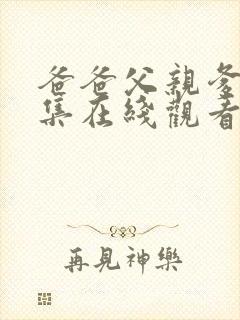 爸爸父親
集在綫觀看
再見神樂